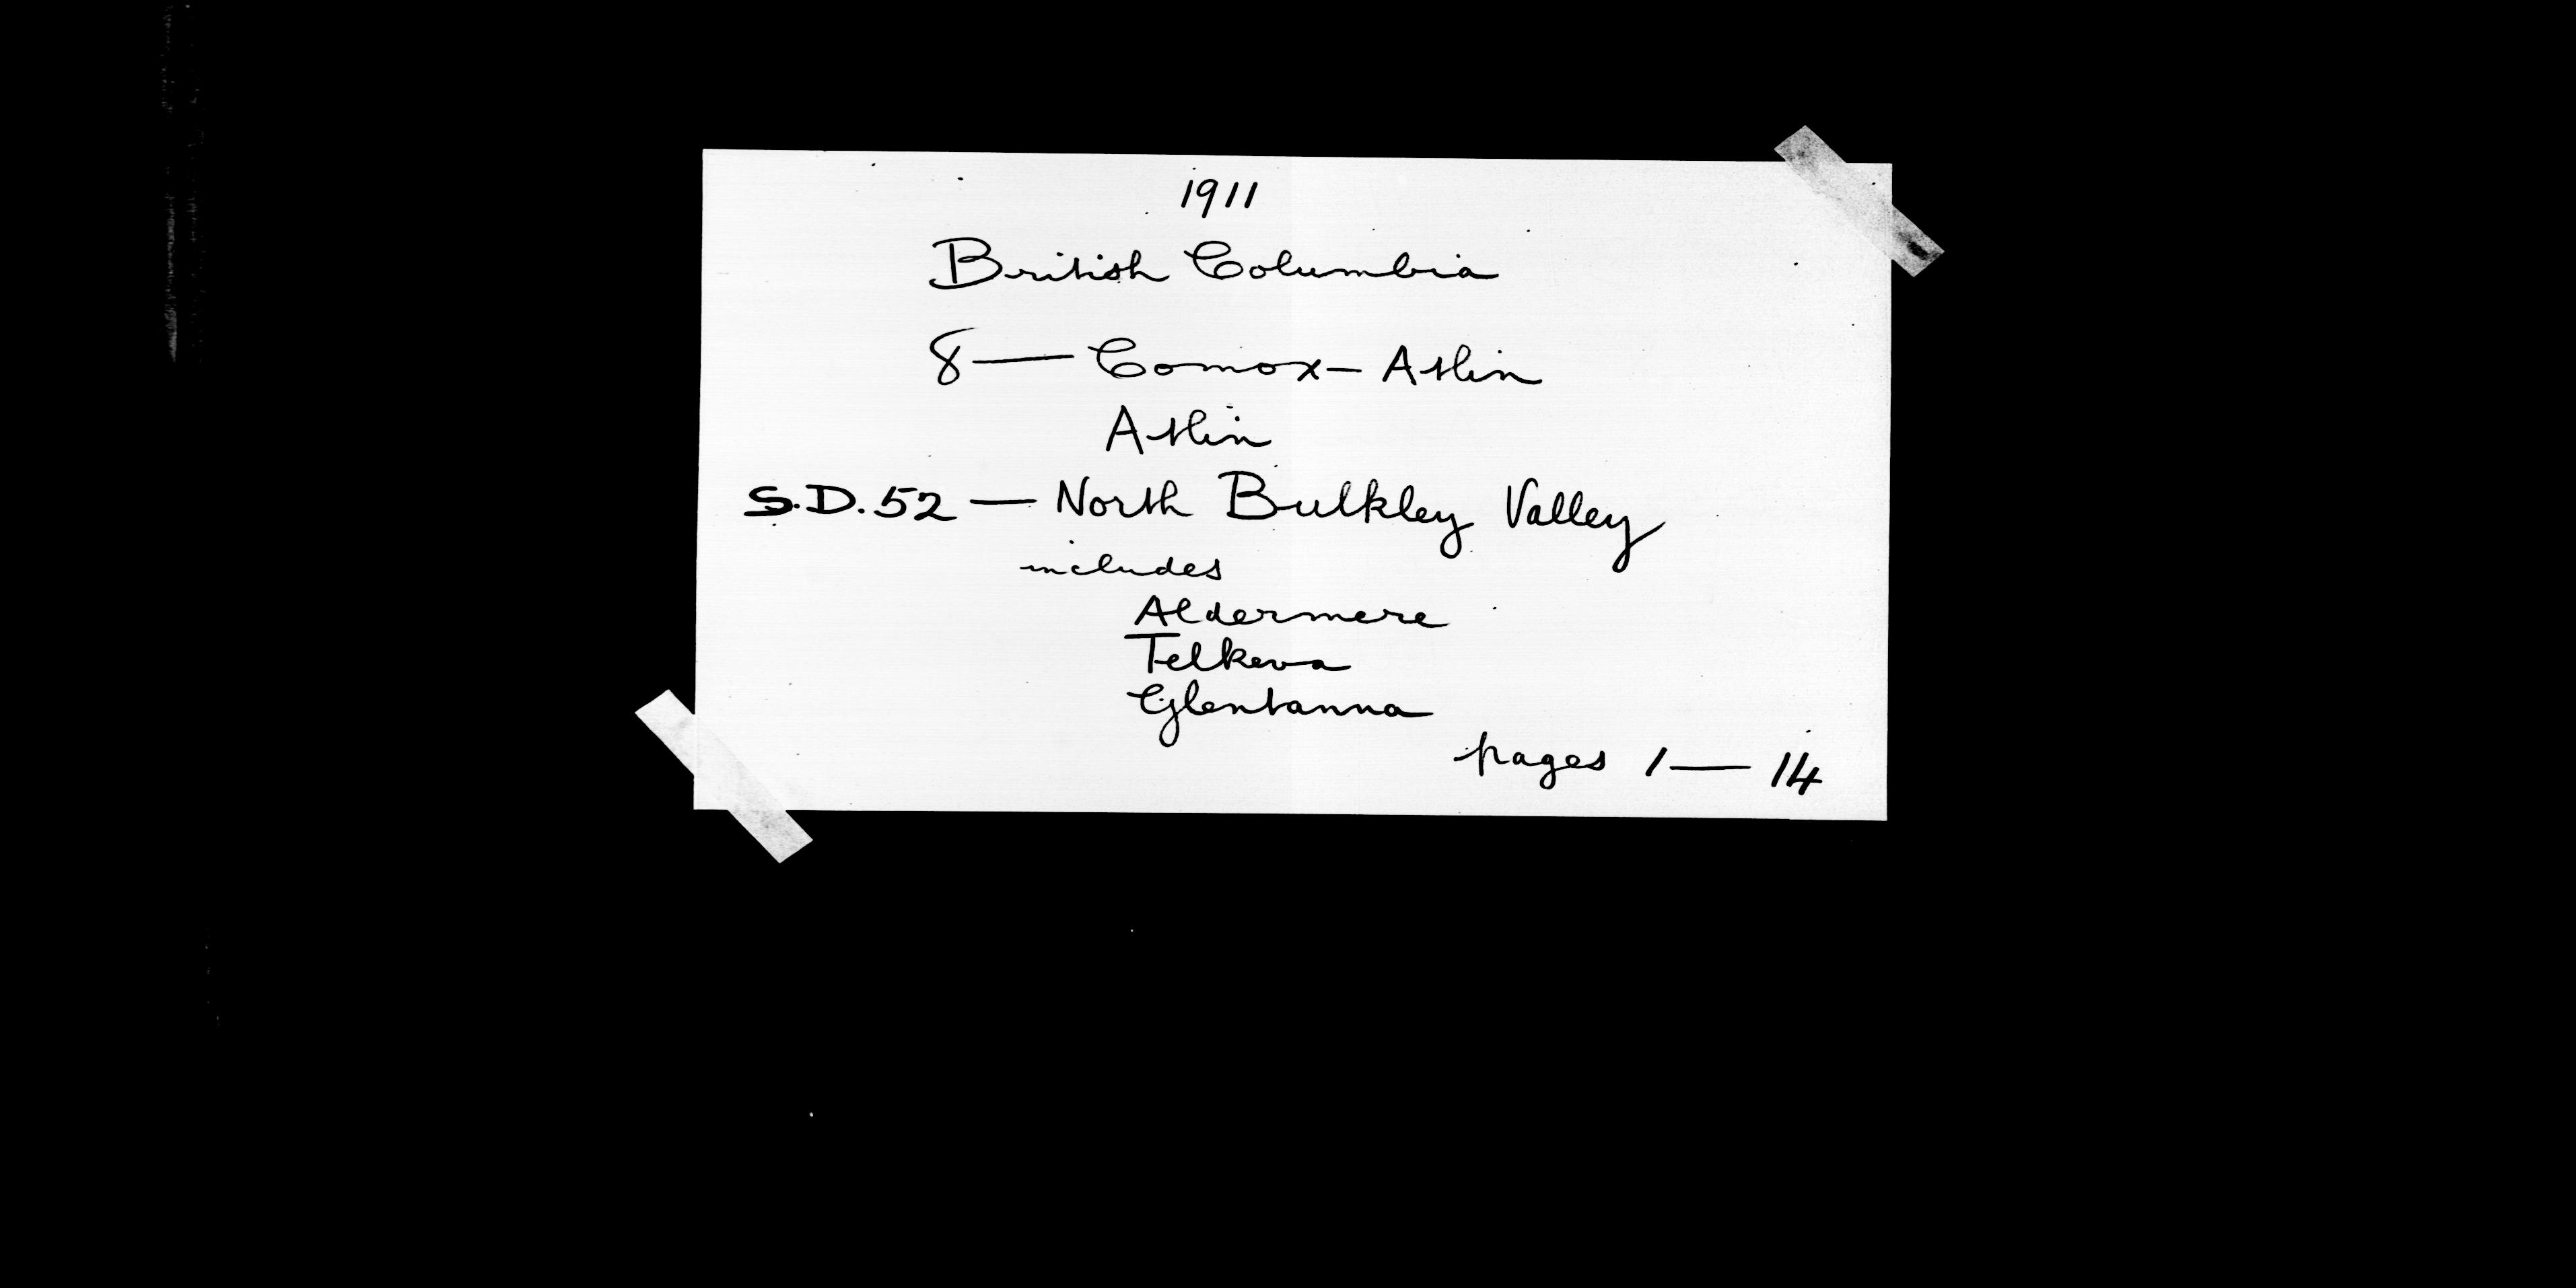 1911
British Columbia
8 — Comox - Atlin
Atlin
S.D. 52 — North Bulkley Valley
includes
Aldermere
Telkeva
Glentanna
pages 1 — 14